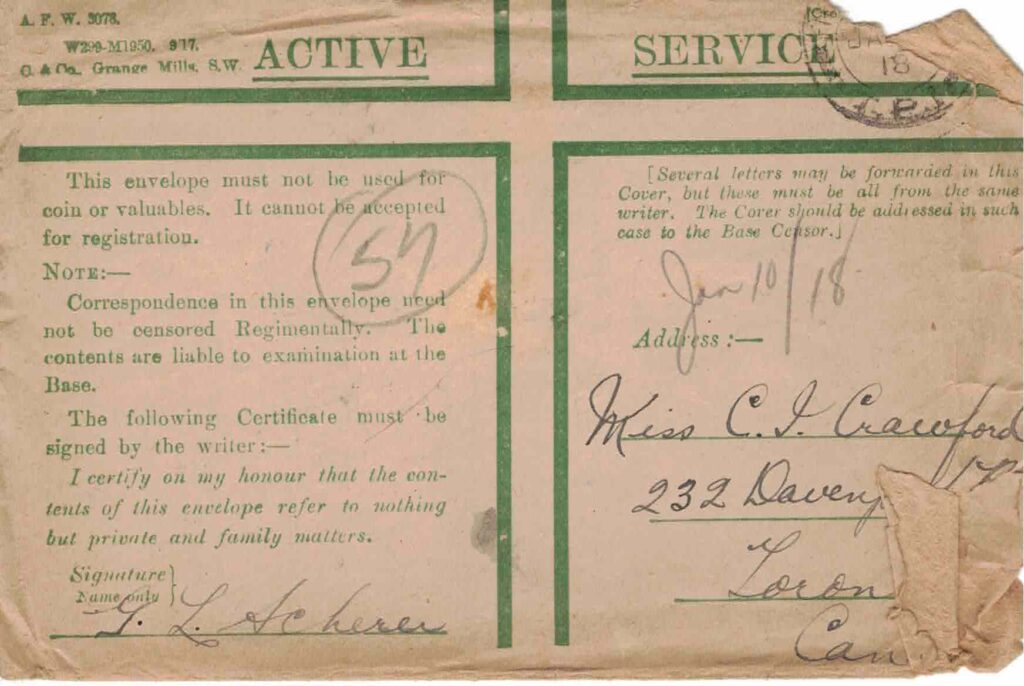 A. F. W. 3078.
W299-M1950. 9/17.
G. & Co., Grange Mills, S.W.
ACTIVE SERVICE
JA
18
This envelope must not be used for
coin or valuables. It cannot be accepted
for registration.
NOTE:—
Correspondence in this envelope need
not be censored Regimentally. The
contents are liable to examination at the
Base.
The following Certificate must be
signed by the writer:—
I certify on my honour that the con-
tents of this envelope refer to nothing
but private and family matters.
Signature
Name only
G. L. Scherer
57
[Several letters may be forwarded in this
Cover, but these must be all from the same
writer. The Cover should be addressed in such
case to the Base Censor.]
Jan 10/18
Address:—
Miss C. I. Crawford
232 Davenp
Toron
Can